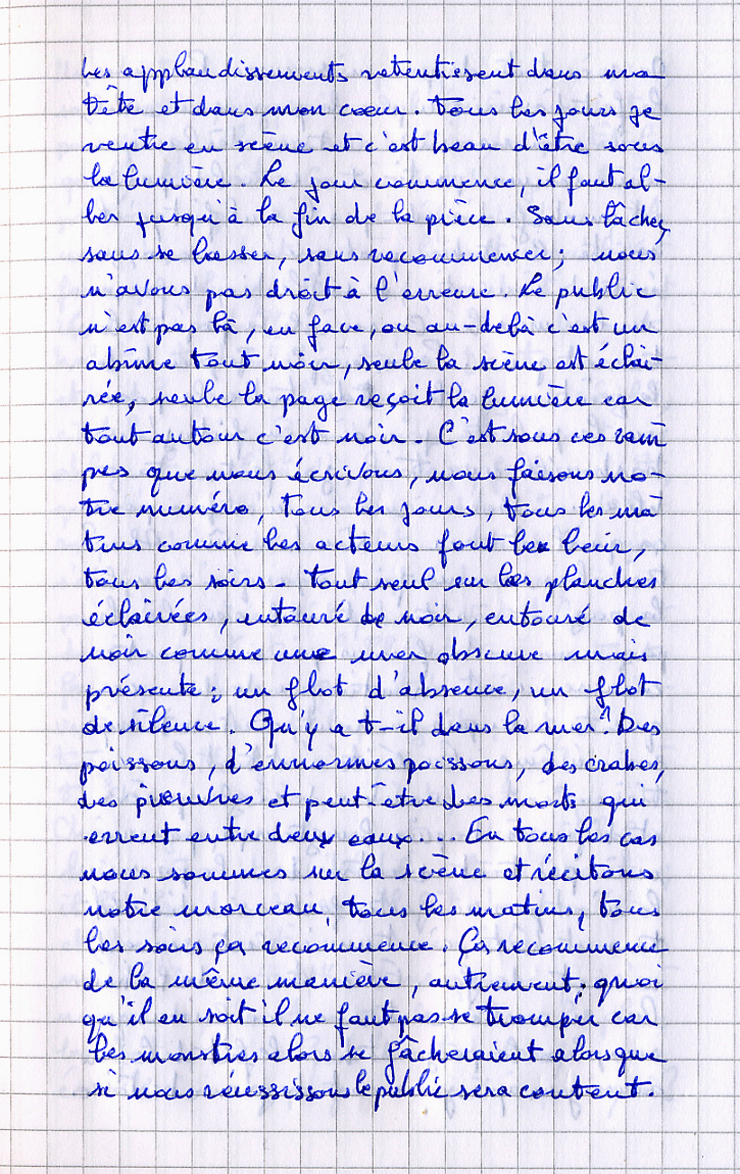 Les applaudissements retentissent dans ma
tête et dans mon cœur. Tous les jours je
rentre en scène et c'est beau d'être sous
la lumière. Le jour commence, il faut al-
ler jusqu'à la fin de la pièce. Sans lâcher,
sans se lasser, sans recommencer; nous
n'avons pas droit à l'erreur. Le public
n'est pas là, en face, ou au-delà c'est un
abîme tout noir, seule la scène est éclai-
rée, seule la page reçoit la lumière car
tout autour c'est noir. C'est sous ces ram
pes que nous écrivons, nous faisons no-
tre numéro, tous les jours, tous les ma
tins comme les acteurs font le leur,
tous les soirs - tout seul sur les planches
éclairées, entouré de noir, entouré de
noir comme une mer obscure mais
présente; un flot d'absence, un flot
de silence. Qu'y a t-il dans la mer? Des
poissons, d'ennormes poissons, des crabes,
des pieuvres et peut-être des morts qui
errent entre deux eaux... En tous les cas
nous sommes sur la scène et récitons
notre morceau, tous les matins, tous
les soirs ça recommence. Ça recommence
de la même manière, autrement; quoi
qu'il en soit il ne faut pas se tromper car
les monstres alors se fâcheraient alors que
si nous réussissons le public sera content.